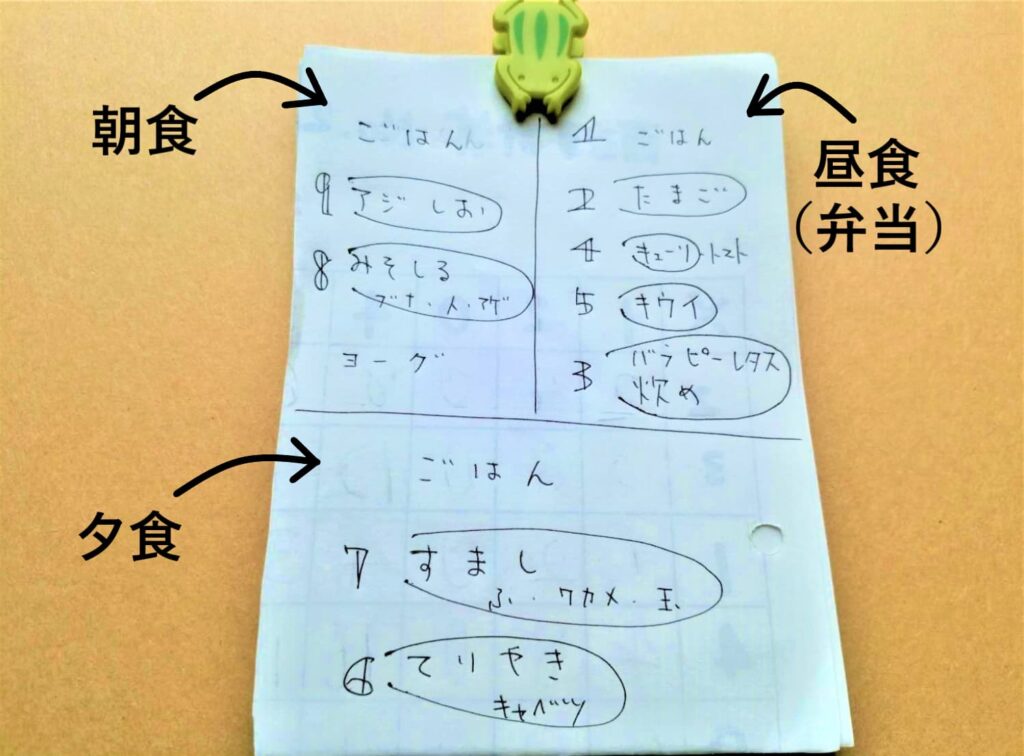 朝食
ごはんん
9 アジ しお
8 みそしる
ブナ・人・アゲ
ヨーグ
昼食
（弁当）
1 ごはん
2 たまご
4 キューリ・トマト
5 キウイ
3 バラピーレタス
炊め
夕食
ごはん
7 すまし
ふ・ワカメ・玉
6 てりやき
キャベツ